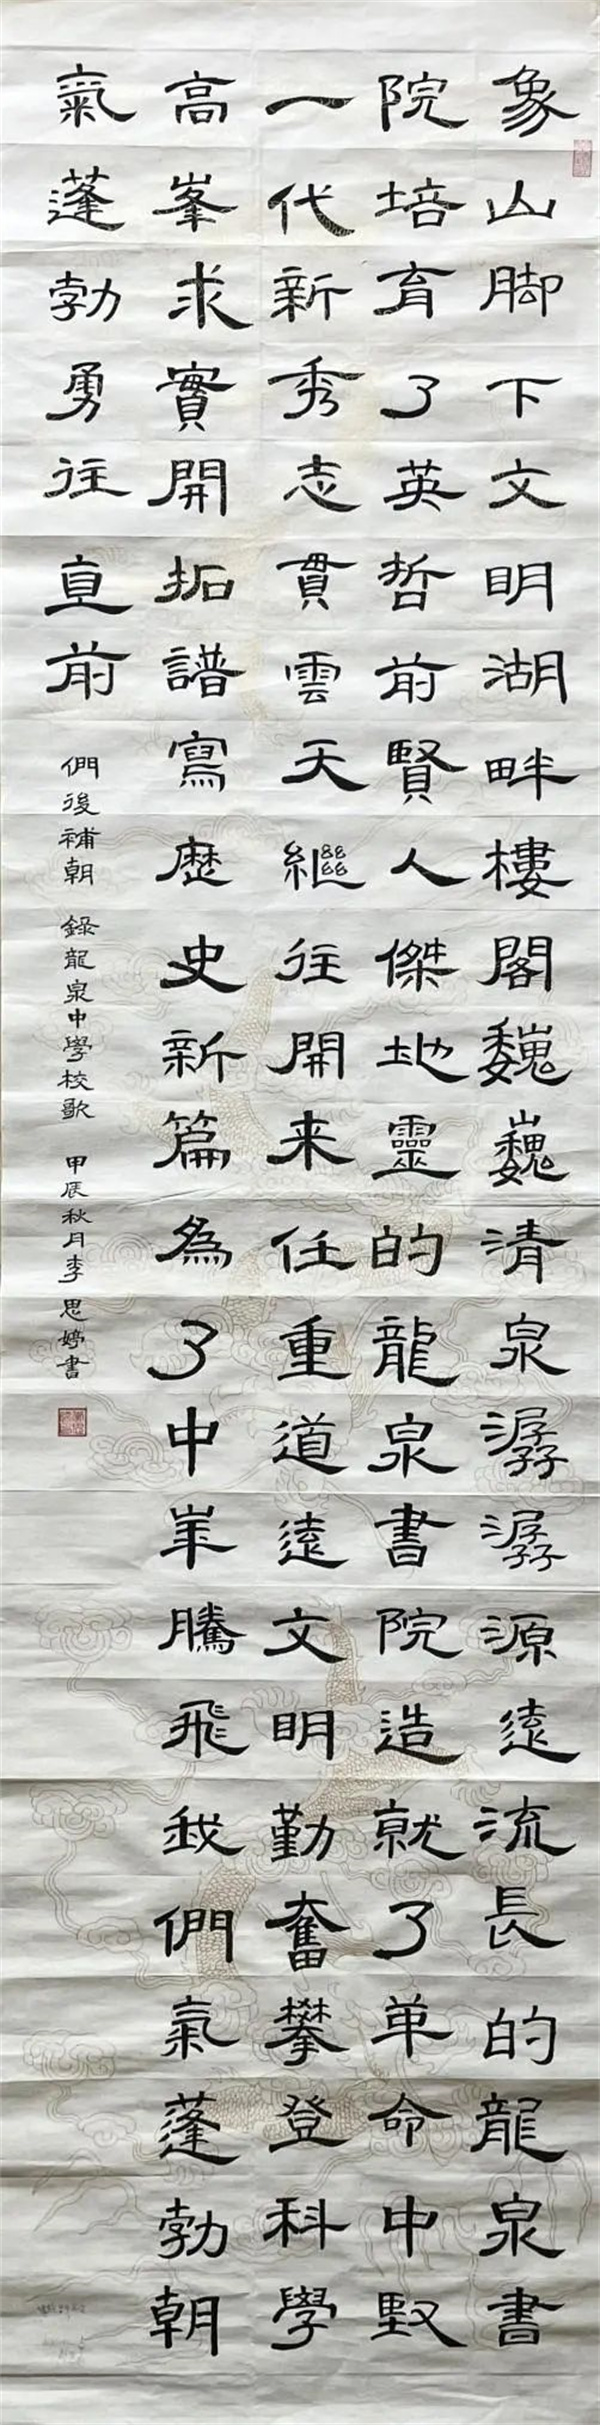 象山脚下文明湖畔樓閣巍巍清泉潺潺源遠流長的龍泉書
院培育了英哲前賢人傑地靈的龍泉書院造就了革命中堅
一代新秀志貫雲天繼往開来任重道遠文明勤奮攀登科學
高峯求實開拓譜寫歷史新篇為了中華騰飛我們氣蓬勃朝
氣蓬勃勇往直前
們後補朝 錄龍泉中學校歌 甲辰秋月李思婷書